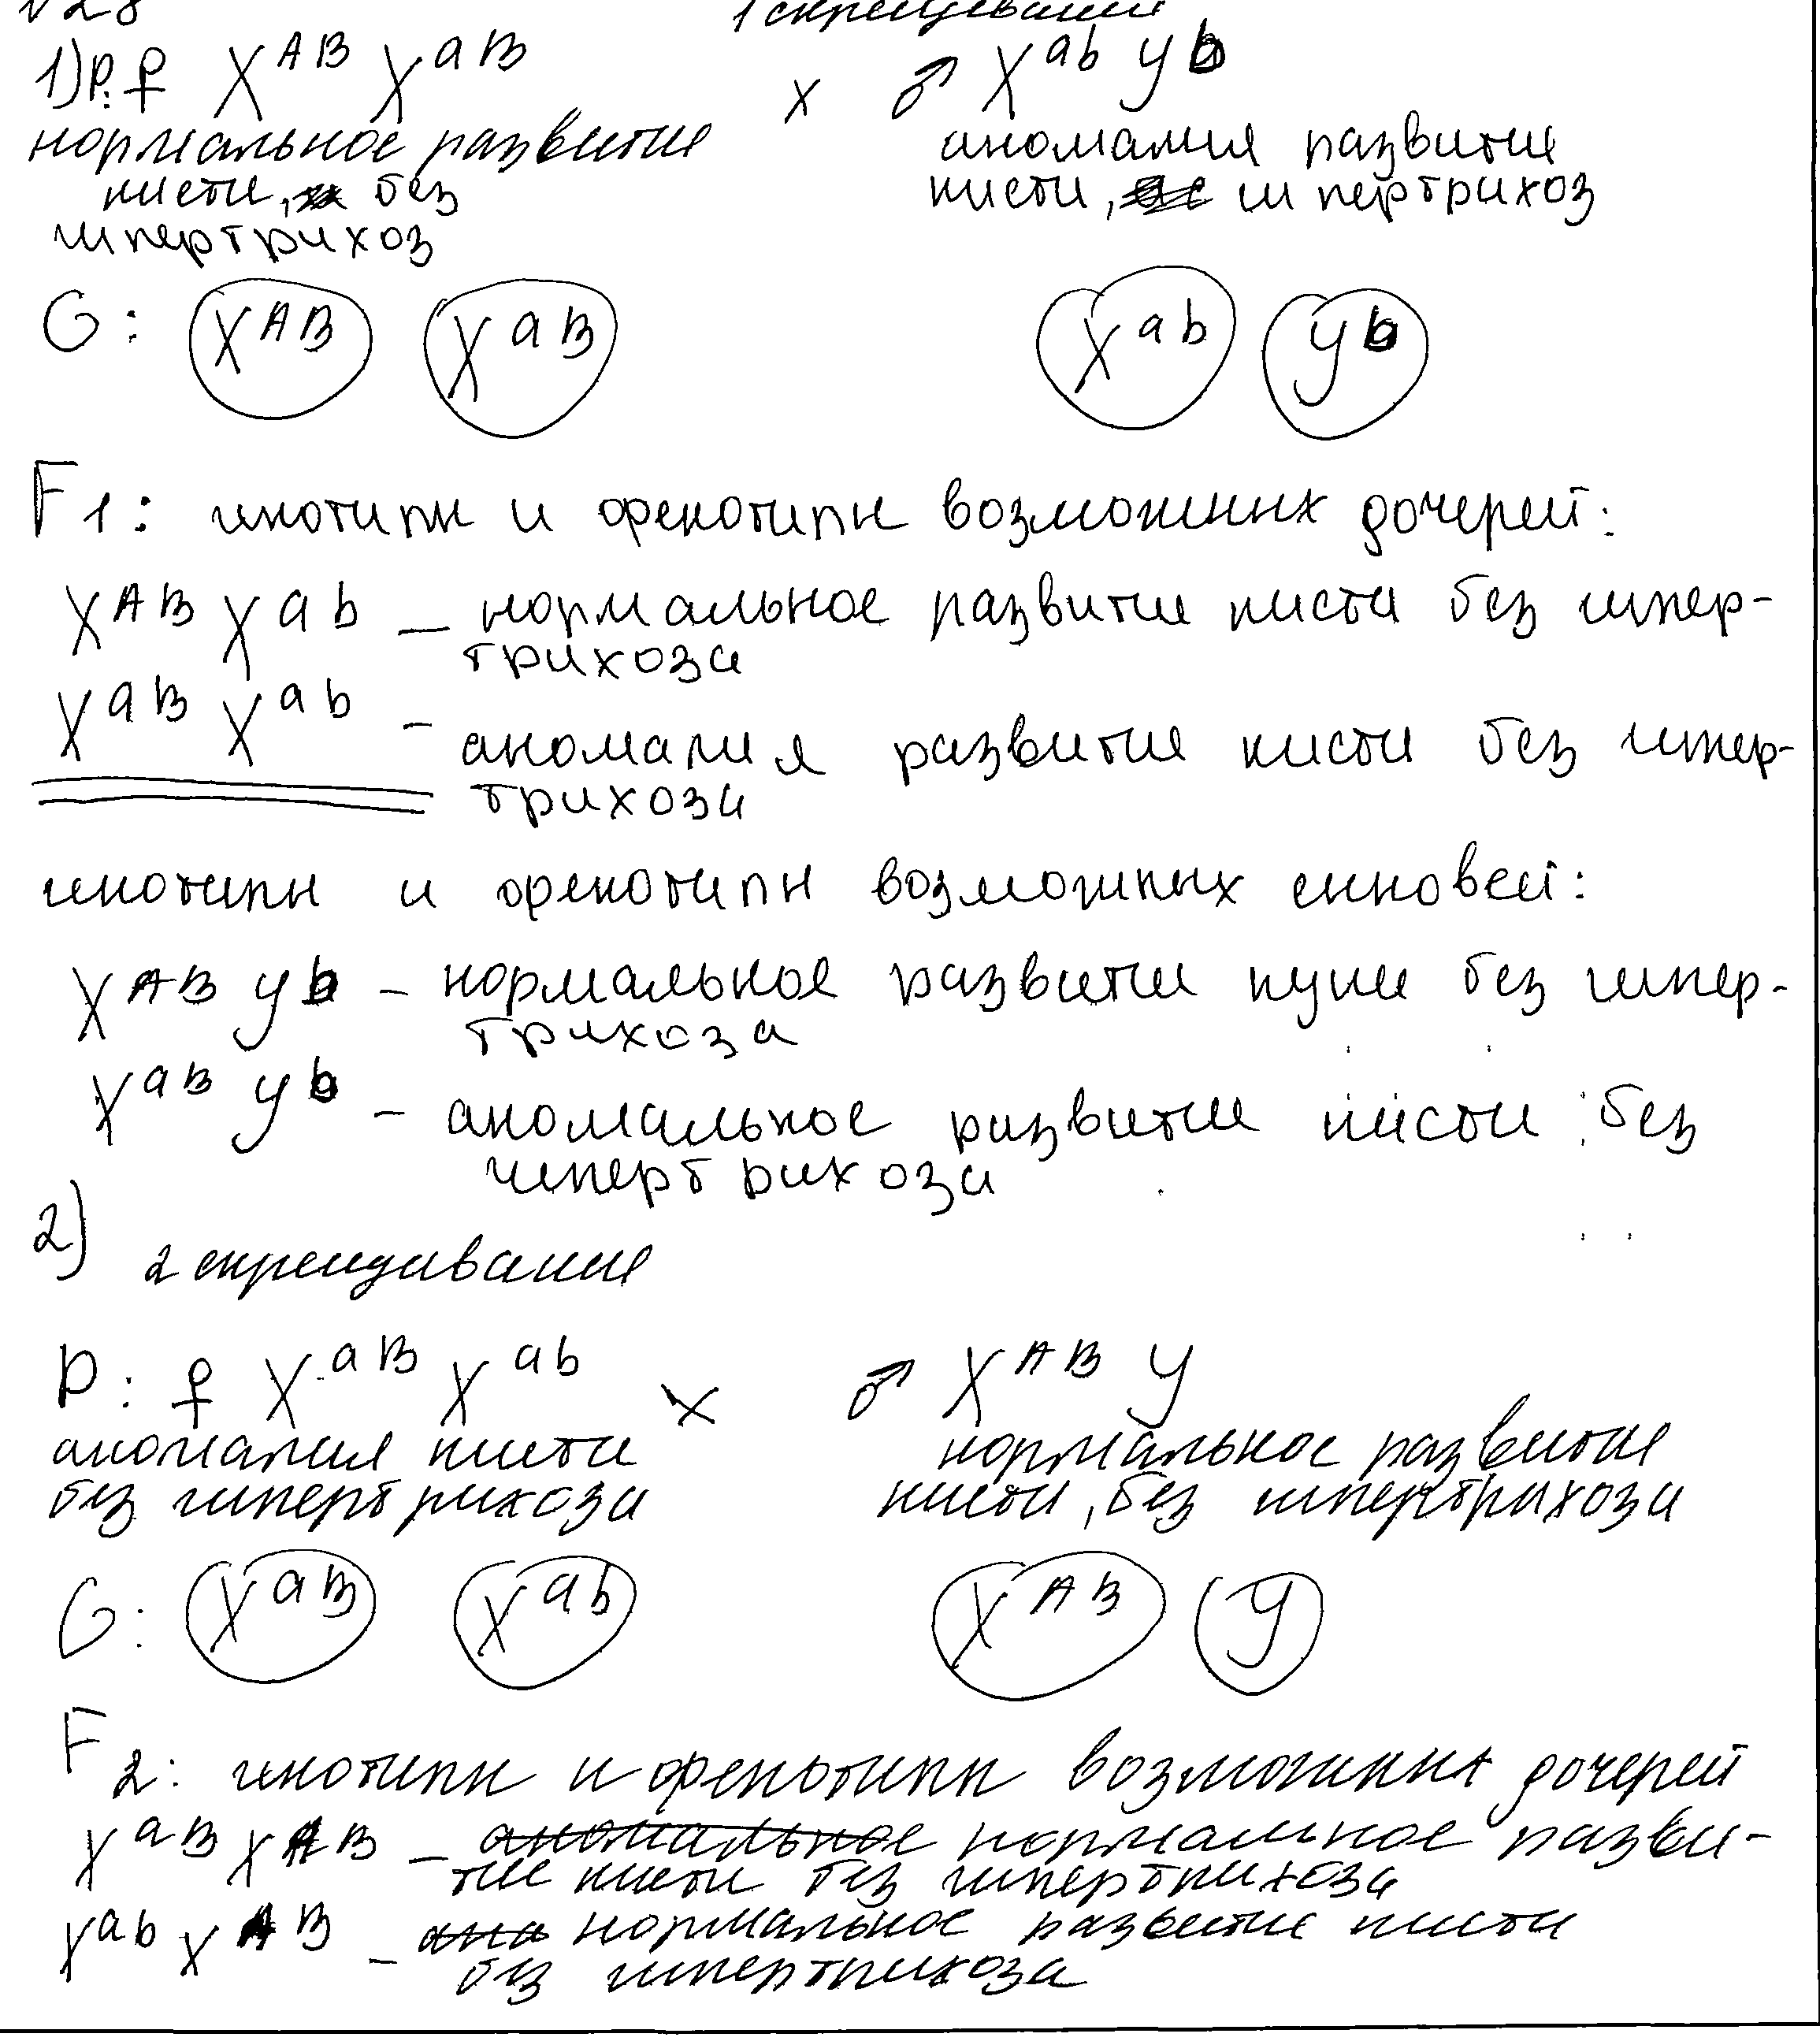 №28 1 скрещивание
1) P: ♀ X^AB X^aB x ♂ X^ab Y^b
нормальное развитие аномалия развитие
кисти, без кисти, гипертрихоз
гипертрихоз
G: X^AB X^aB X^ab Y^b
F1: генотипы и фенотипы возможных дочерей:
X^AB X^ab — нормальное развитие кисти без гипер-
трихоза
X^aB X^ab - аномалия развитие кисти без гипер-
трихоза
генотипы и фенотипы возможных сыновей:
X^AB Y^b - нормальное развитие кучи без гипер-
трихоза
X^aB Y^b - аномальное развитие кисти без
гипертрихоза
2) 2 скрещивание
P: ♀ X^aB X^ab x ♂ X^AB Y
аномалия кисти нормальное развитие
без гипертрихоза кисти, без гипертрихоза
G: X^aB X^ab X^AB Y
F2: генотипы и фенотипы возможных дочерей
X^aB X^AB - аномальное нормальное разви-
тие кисти без гипертрихоза
X^ab X^AB - ана нормальное развитие кисти
без гипертрихоза